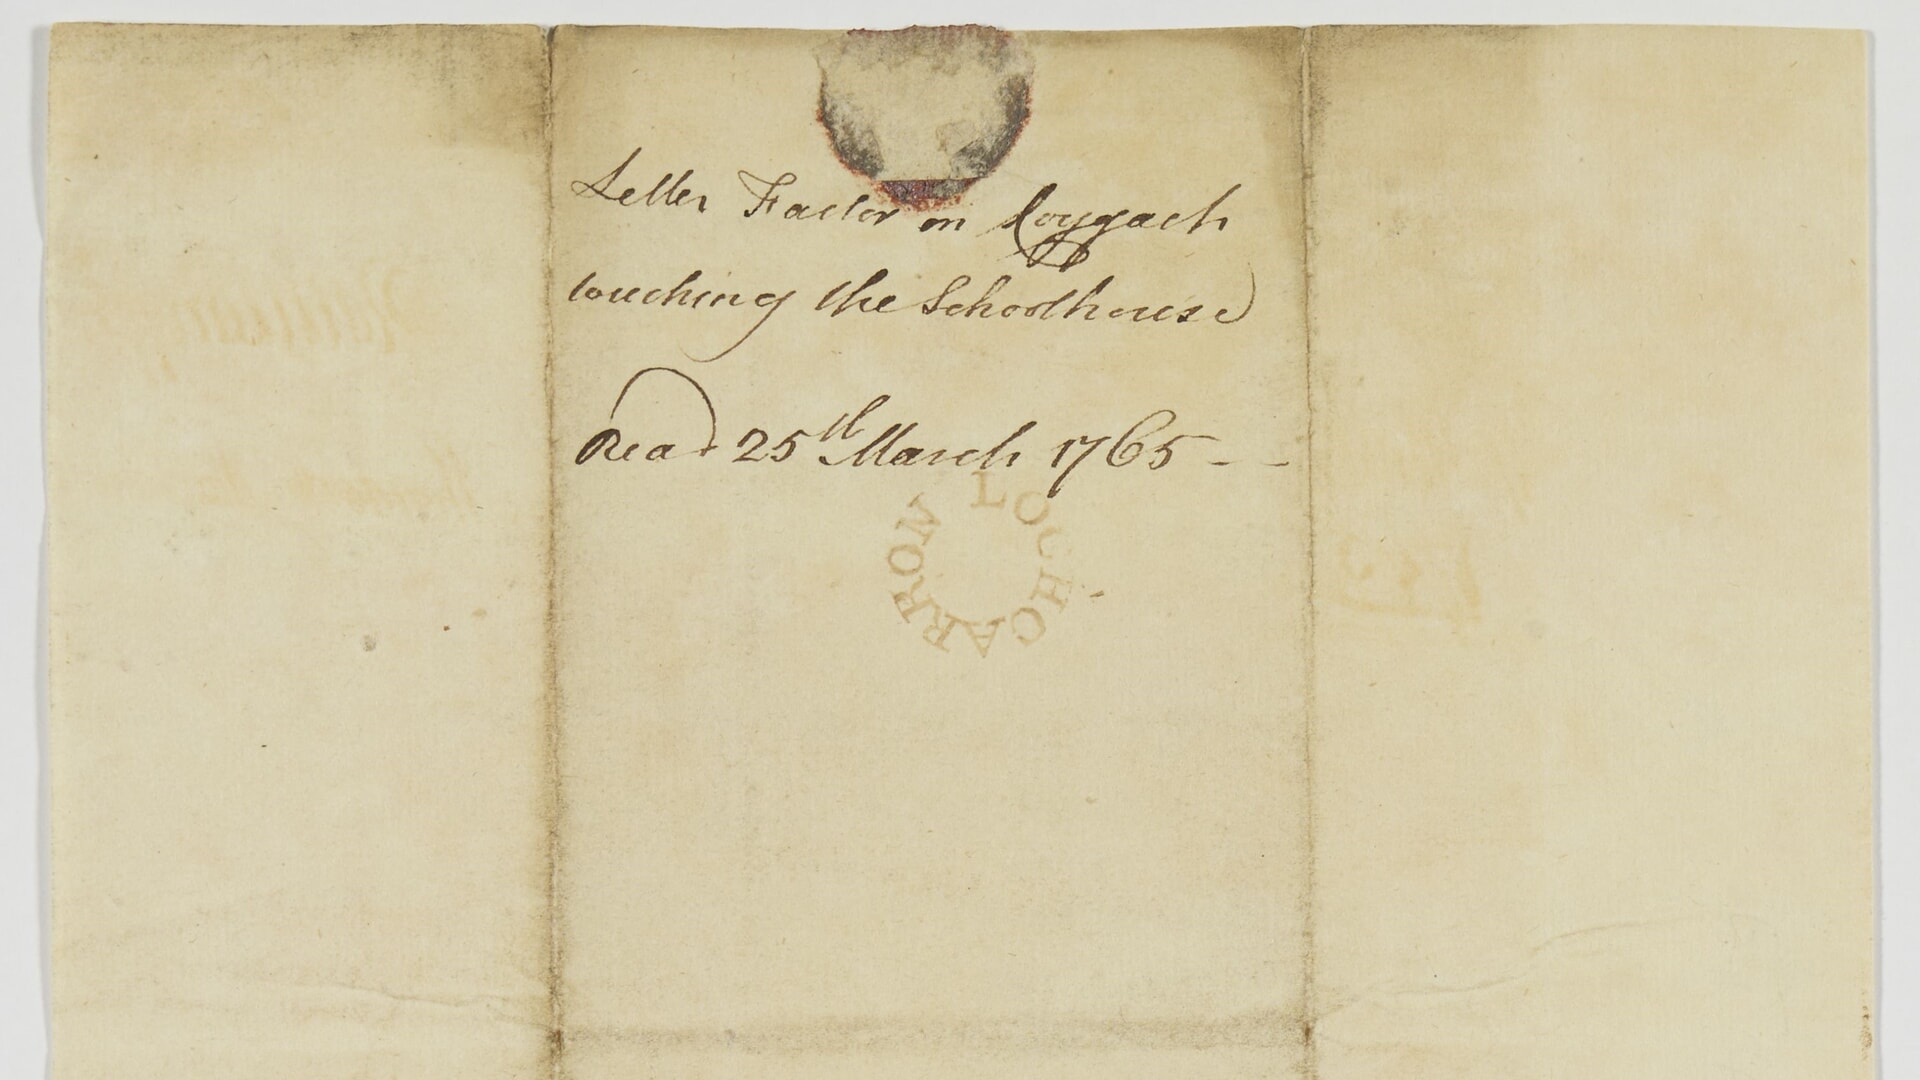 Letter Factor on Coygach
touching the Schoolhouse
Read 25th March 1765 - -
LOCHCARRON